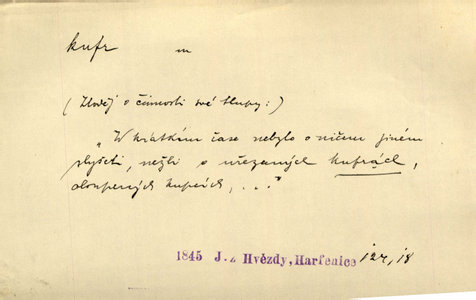 kufr m
(Zloděj o činnosti své tlupy:)
„V krátkém čase nebylo o ničem jiném
slyšeti, nežli o uřezaných kufrách,
oloupených kupcích, . . .“
1845 J. z Hvězdy, Harfenice 124, 18